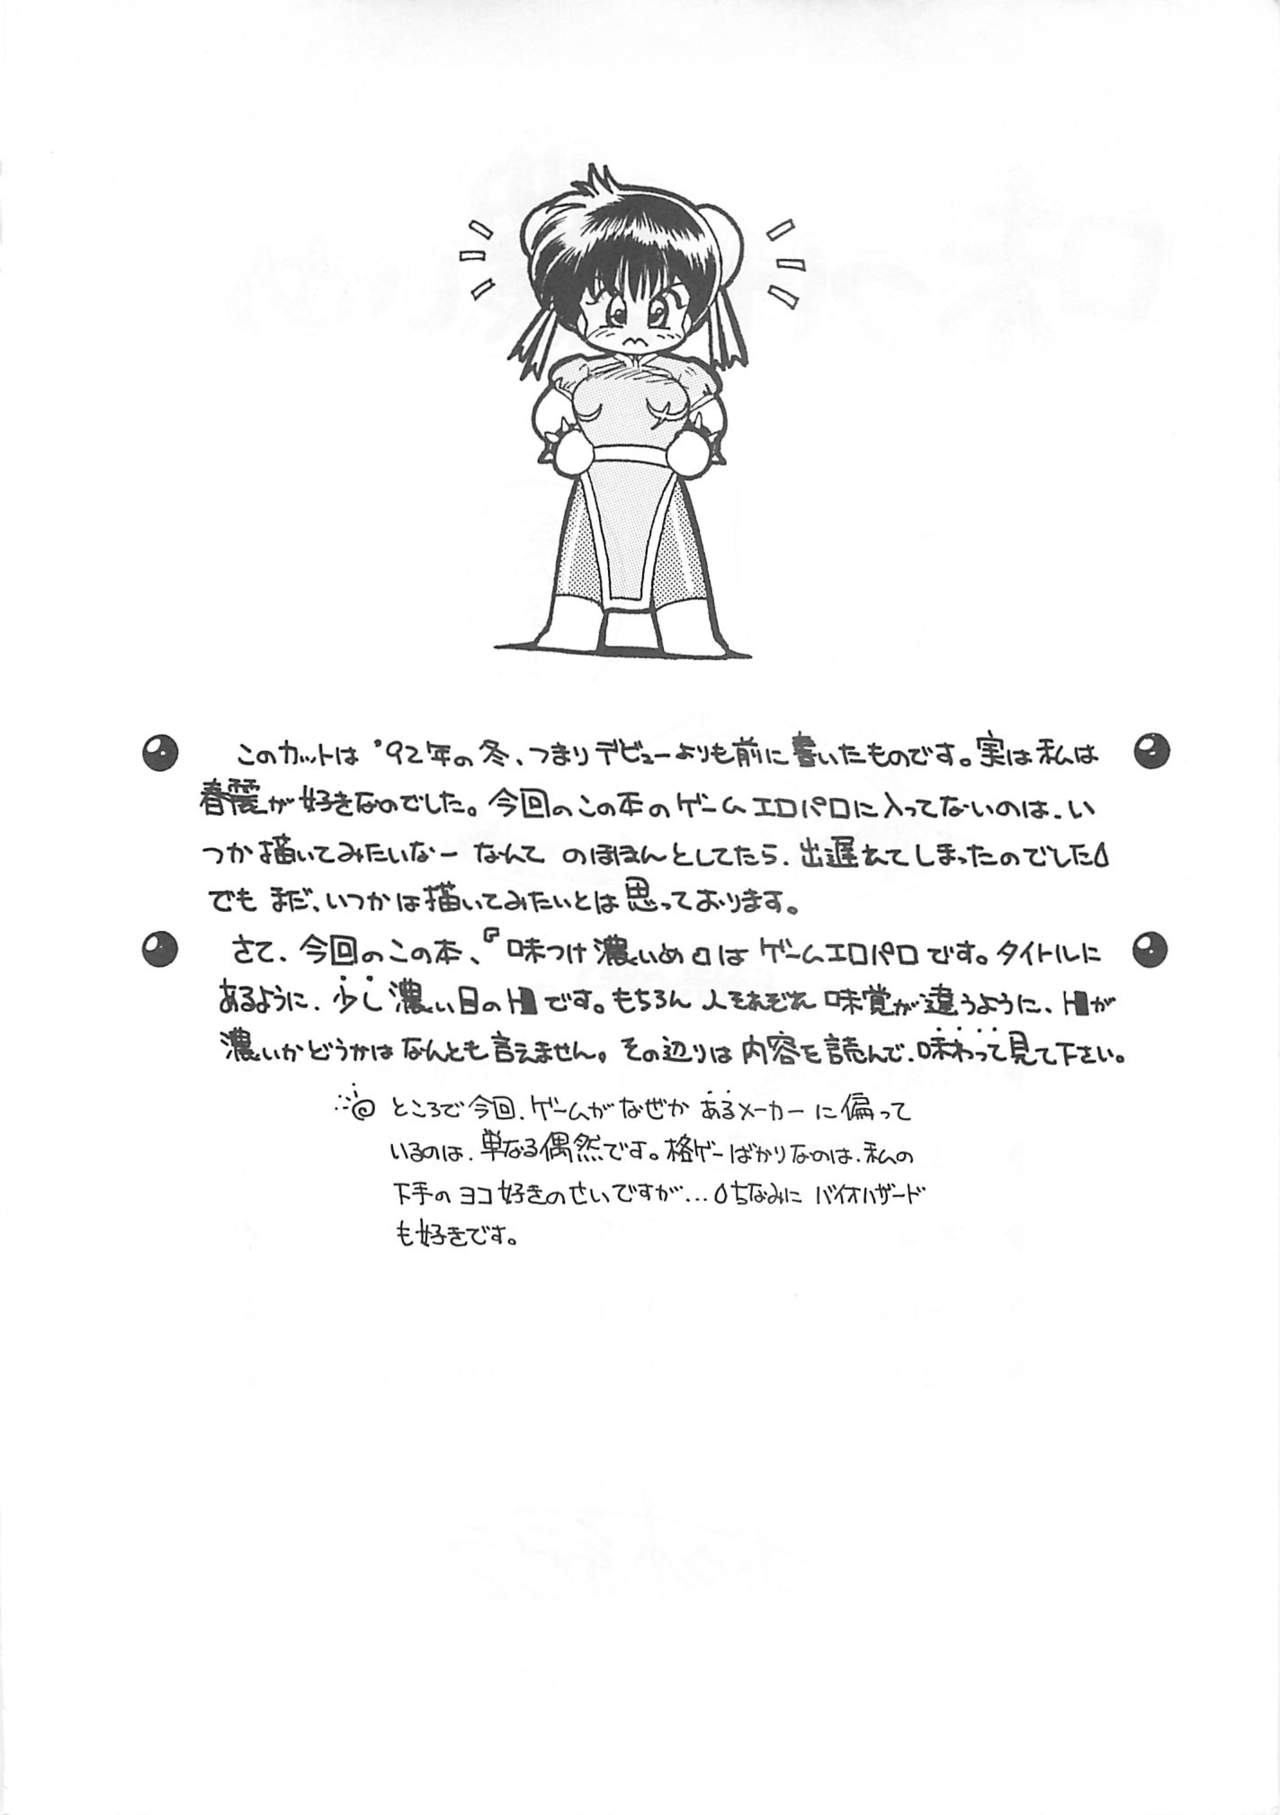 このカットは '92年の冬、つまりデビューよりも前に書いたものです。実は私は
春麗が好きなのでした。今回のこの本のゲームエロパロに入ってないのは、い
つか描いてみたいなー なんて のほほんとしてたら、出遅れてしまったのでした
でも まだ、いつかは描いてみたいとは思っております。
さて、今回のこの本、『味つけ濃いめ』は ゲームエロパロです。タイトルに
あるように、少し濃い目のHです。もちろん 人それぞれ 味覚が違うように、Hが
濃いかどうかは なんとも言えません。その辺りは 内容を読んで、味わって見て下さい。
ところで今回、ゲームがなぜか あるメーカーに偏って
いるのは、単なる偶然です。格ゲーばかりなのは、私の
下手のヨコ好きのせいですが…ちなみに バイオハザード
も好きです。